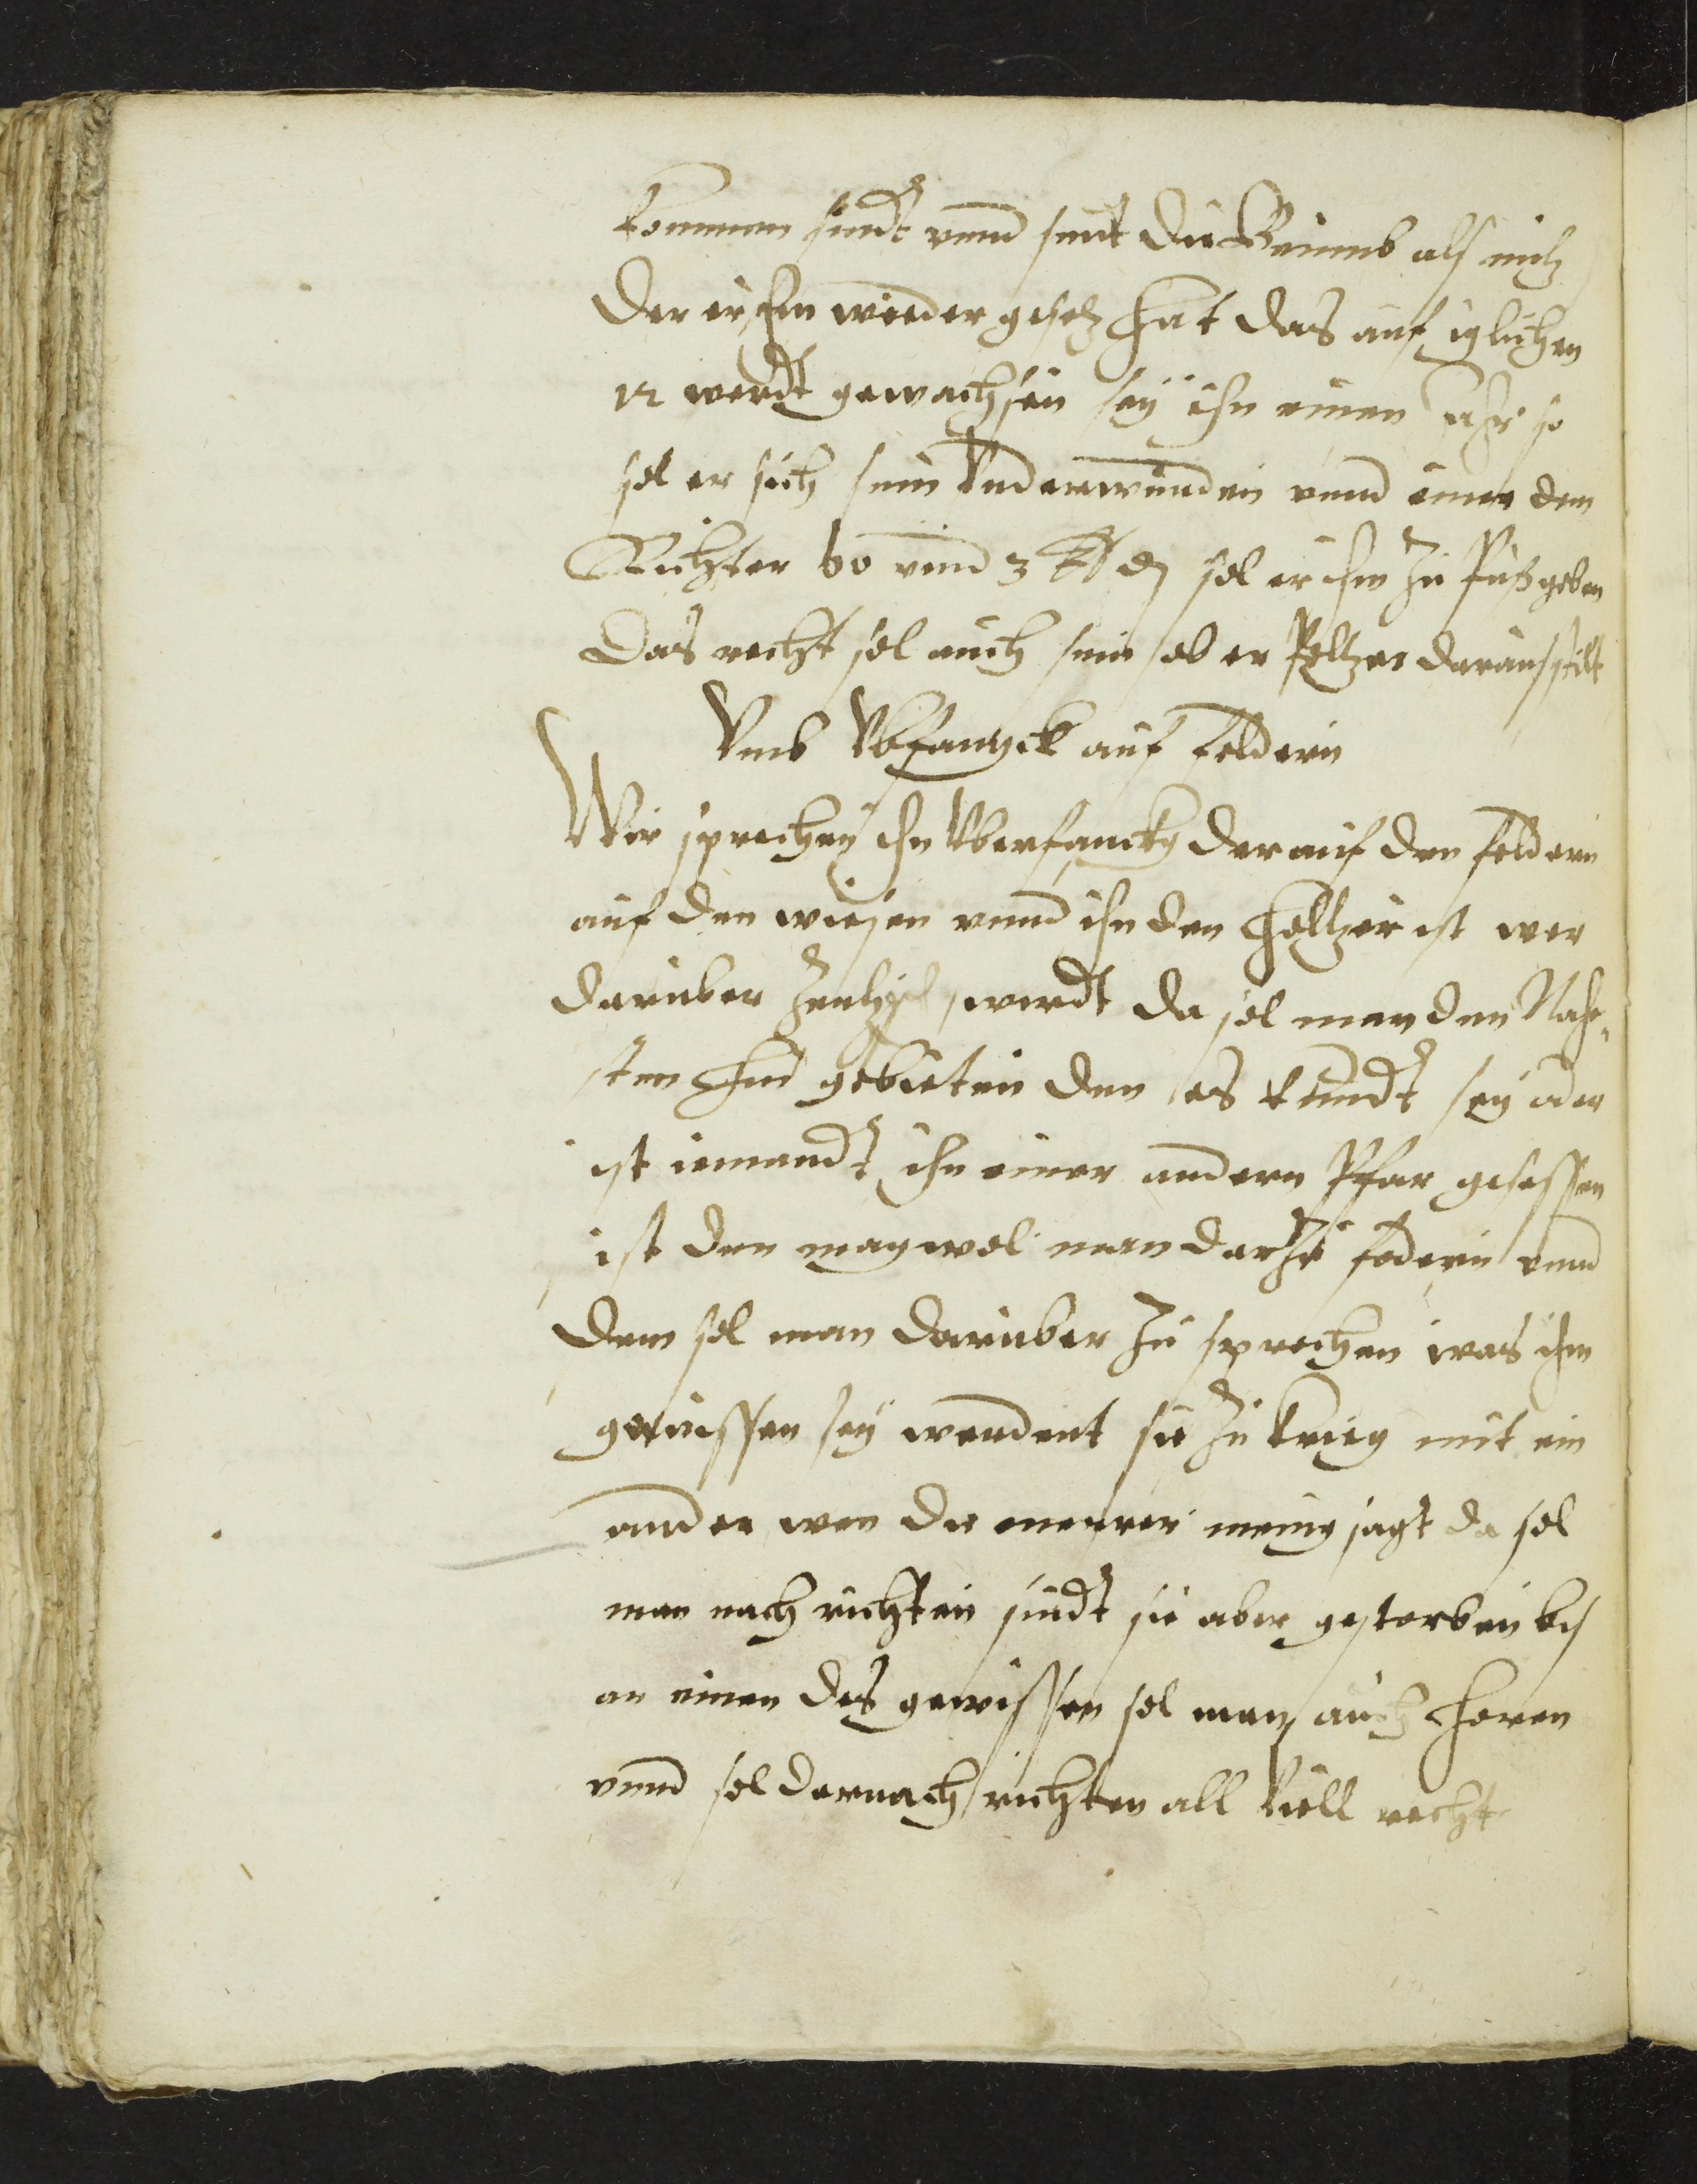 kommen sindt vnnd sint die Beimb als nich
der er ihm wieder gesetz hat das auf iglichen
12 werdt gewachsen sey ihn einen Jahr so
sol er sich sein Vnderwunden vnnd einen dem
Richter 60 vnnd 3 ℔ ₰ sol er ihm zu puß geben
Das recht sol auch sein ob er Peltzer daraus stilt
Vmb Vbfangck auf feldern
Wir sprechen ihn Vberfanckh der auf den feldern
auf den wiesen vnnd ihn den holtzer ist wer
daruber werdt da sol man den Nahe-
sten hin gebieten den es kundt sey oder
ist iemandt ihn einer andern Pfar gesessen
ist den mag wol man darzu fodern vnnd
dem sol man daruber zu sprechen was ihm
gewissen sey werdent sie zu krieg mit ein
ander wen die merrer menig sagt da sol
man nach richten sindt sie aber gestorben bis
an einen des gewissen sol man auch horen
vnnd sol darnach richten all Viell recht